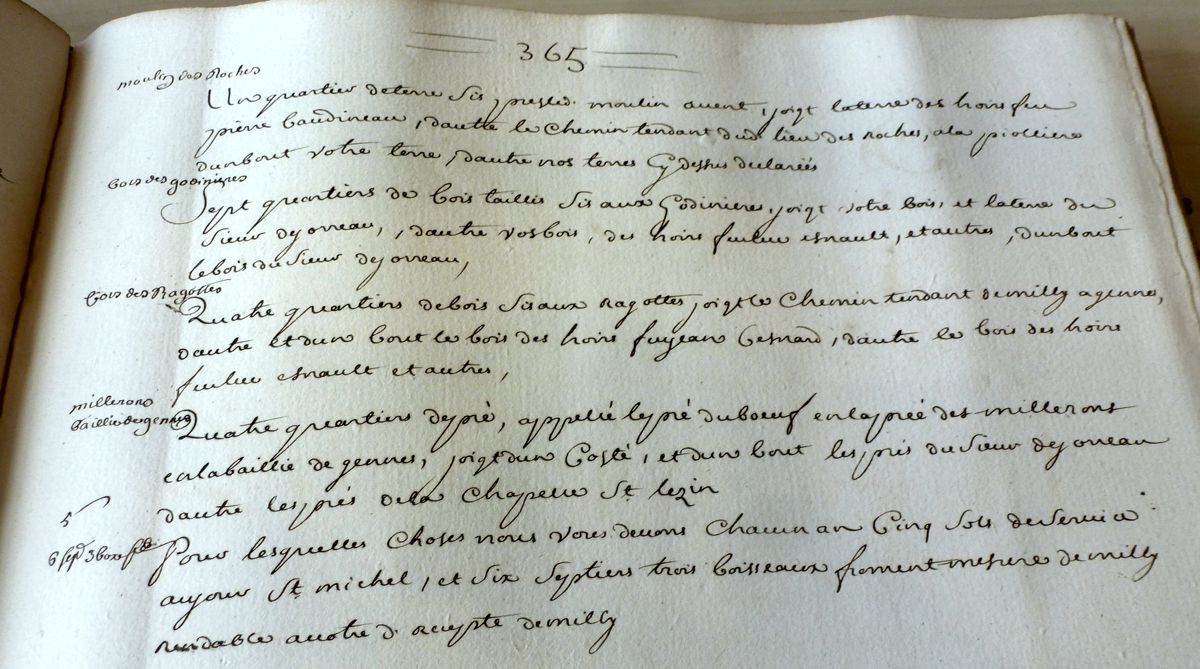 365
moulin des Roches
Un quartier de terre sis presled. moulin avent, joigt laterre des hoirs feu
pierre baudineau, dautre le chemin tendant dud. lieu des roches, ala piolliere
dunbout votre terre, dautre nos terres cy dessus declarées
bois des godinieres
Sept quartiers de bois taillis sis aux Godiniere, joigt votre bois, et laterre du
sieur dejorreau, dautre vosbois, des hoirs feuluc esnault, et autres, dunbout
lebois du sieur dejorreau,
bois des Ragottes
Quatre quartiers debois sisaux ragottes, joigtle chemin tendant demilly agennes,
dautre et dun bout le bois des hoirs feujean besnard, dautre le bois des hoirs
feuluc esnault et autres,
millerons
baillie degennes
Quatre quartiers depré, appellé lepré duboeuf enlaprée des millerons
enlabaillie de gennes, joigtdun Costé, et dun bout lesprés du sieur dejorreau
dautre lesprés dela chapelle St. lezin
5
Pour lesquelles choses nous vous devons chacun an Cinq sols de service
6 sepd. 3 boix
aujour St. michel, et six septiers trois boisseaux froment mesure demilly
rendable avotre d. recepte demilly